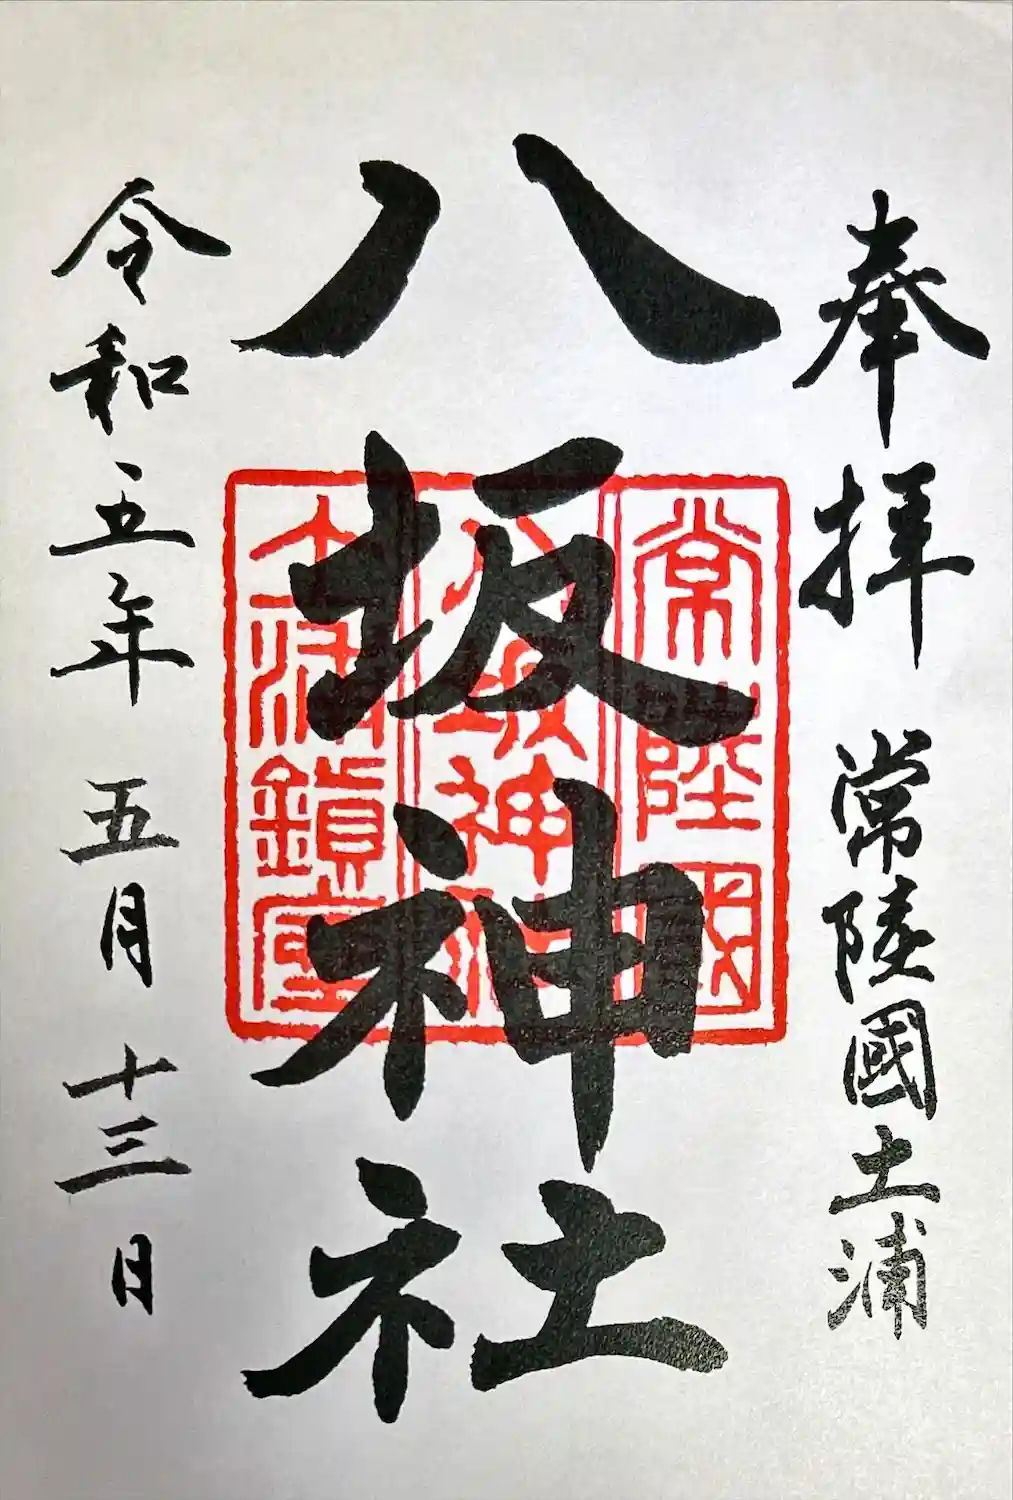 奉拝 常陸國土浦
八坂神社
常陸國
八坂神社
土浦鎮座
令和五年 五月 十三日